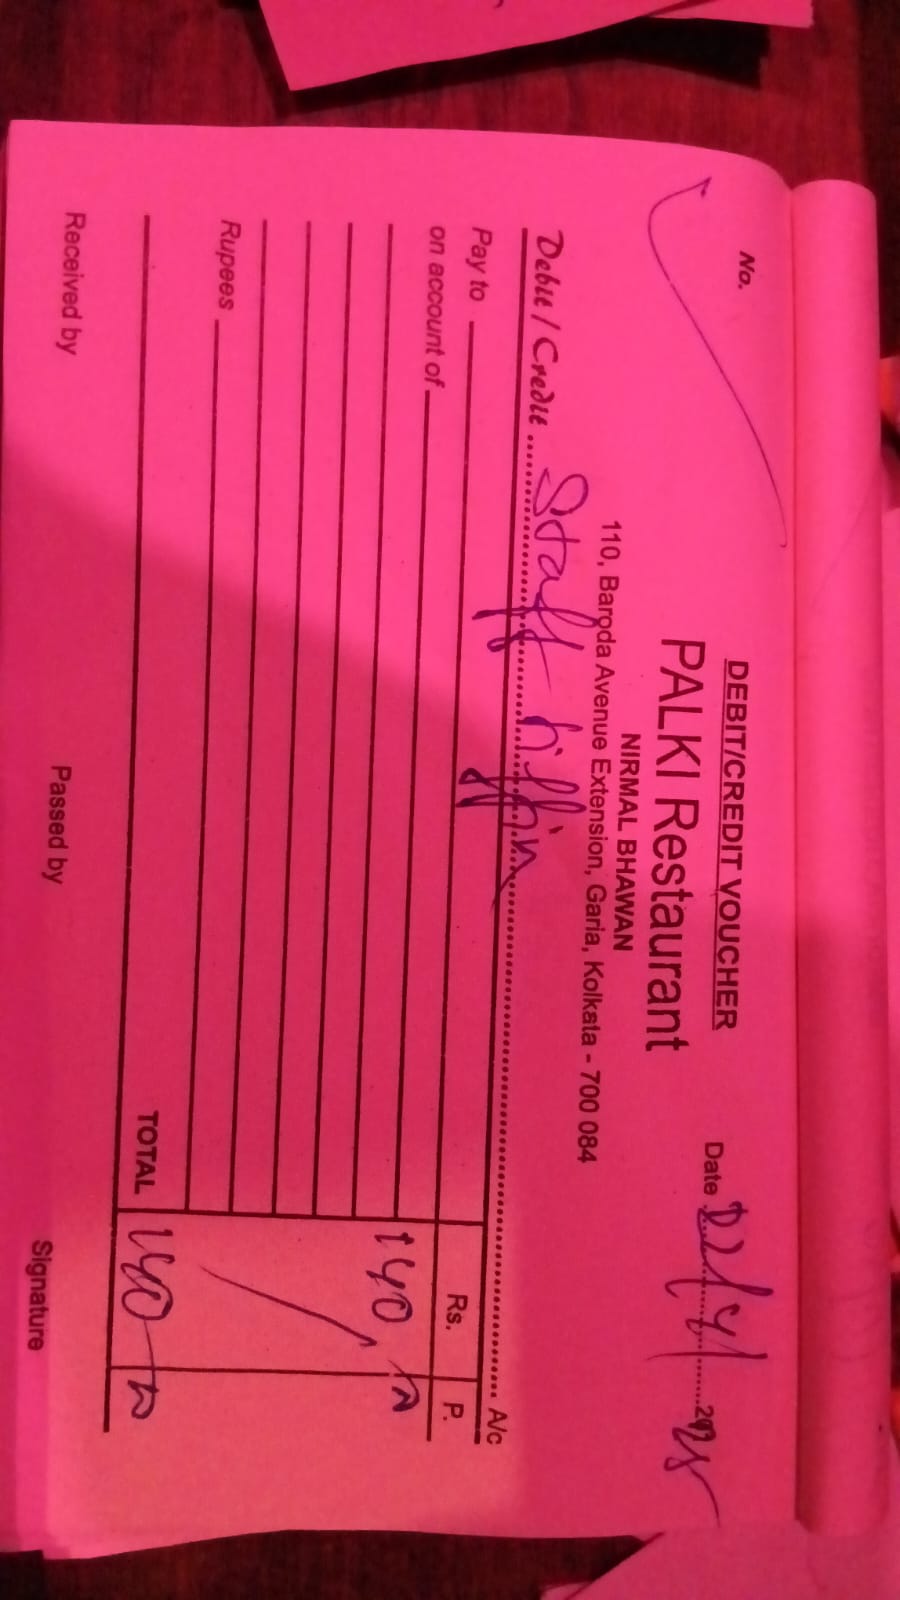 No.
DEBIT/CREDIT VOUCHER
PALKI Restaurant
NIRMAL BHAWAN
110, Baroda Avenue Extension, Garia, Kolkata - 700 084
Date
Debit / Credit Staff tiffin A/c
Pay to
Rs. P.
on account of
140
Rupees
TOTAL 140
Received by Passed by Signature